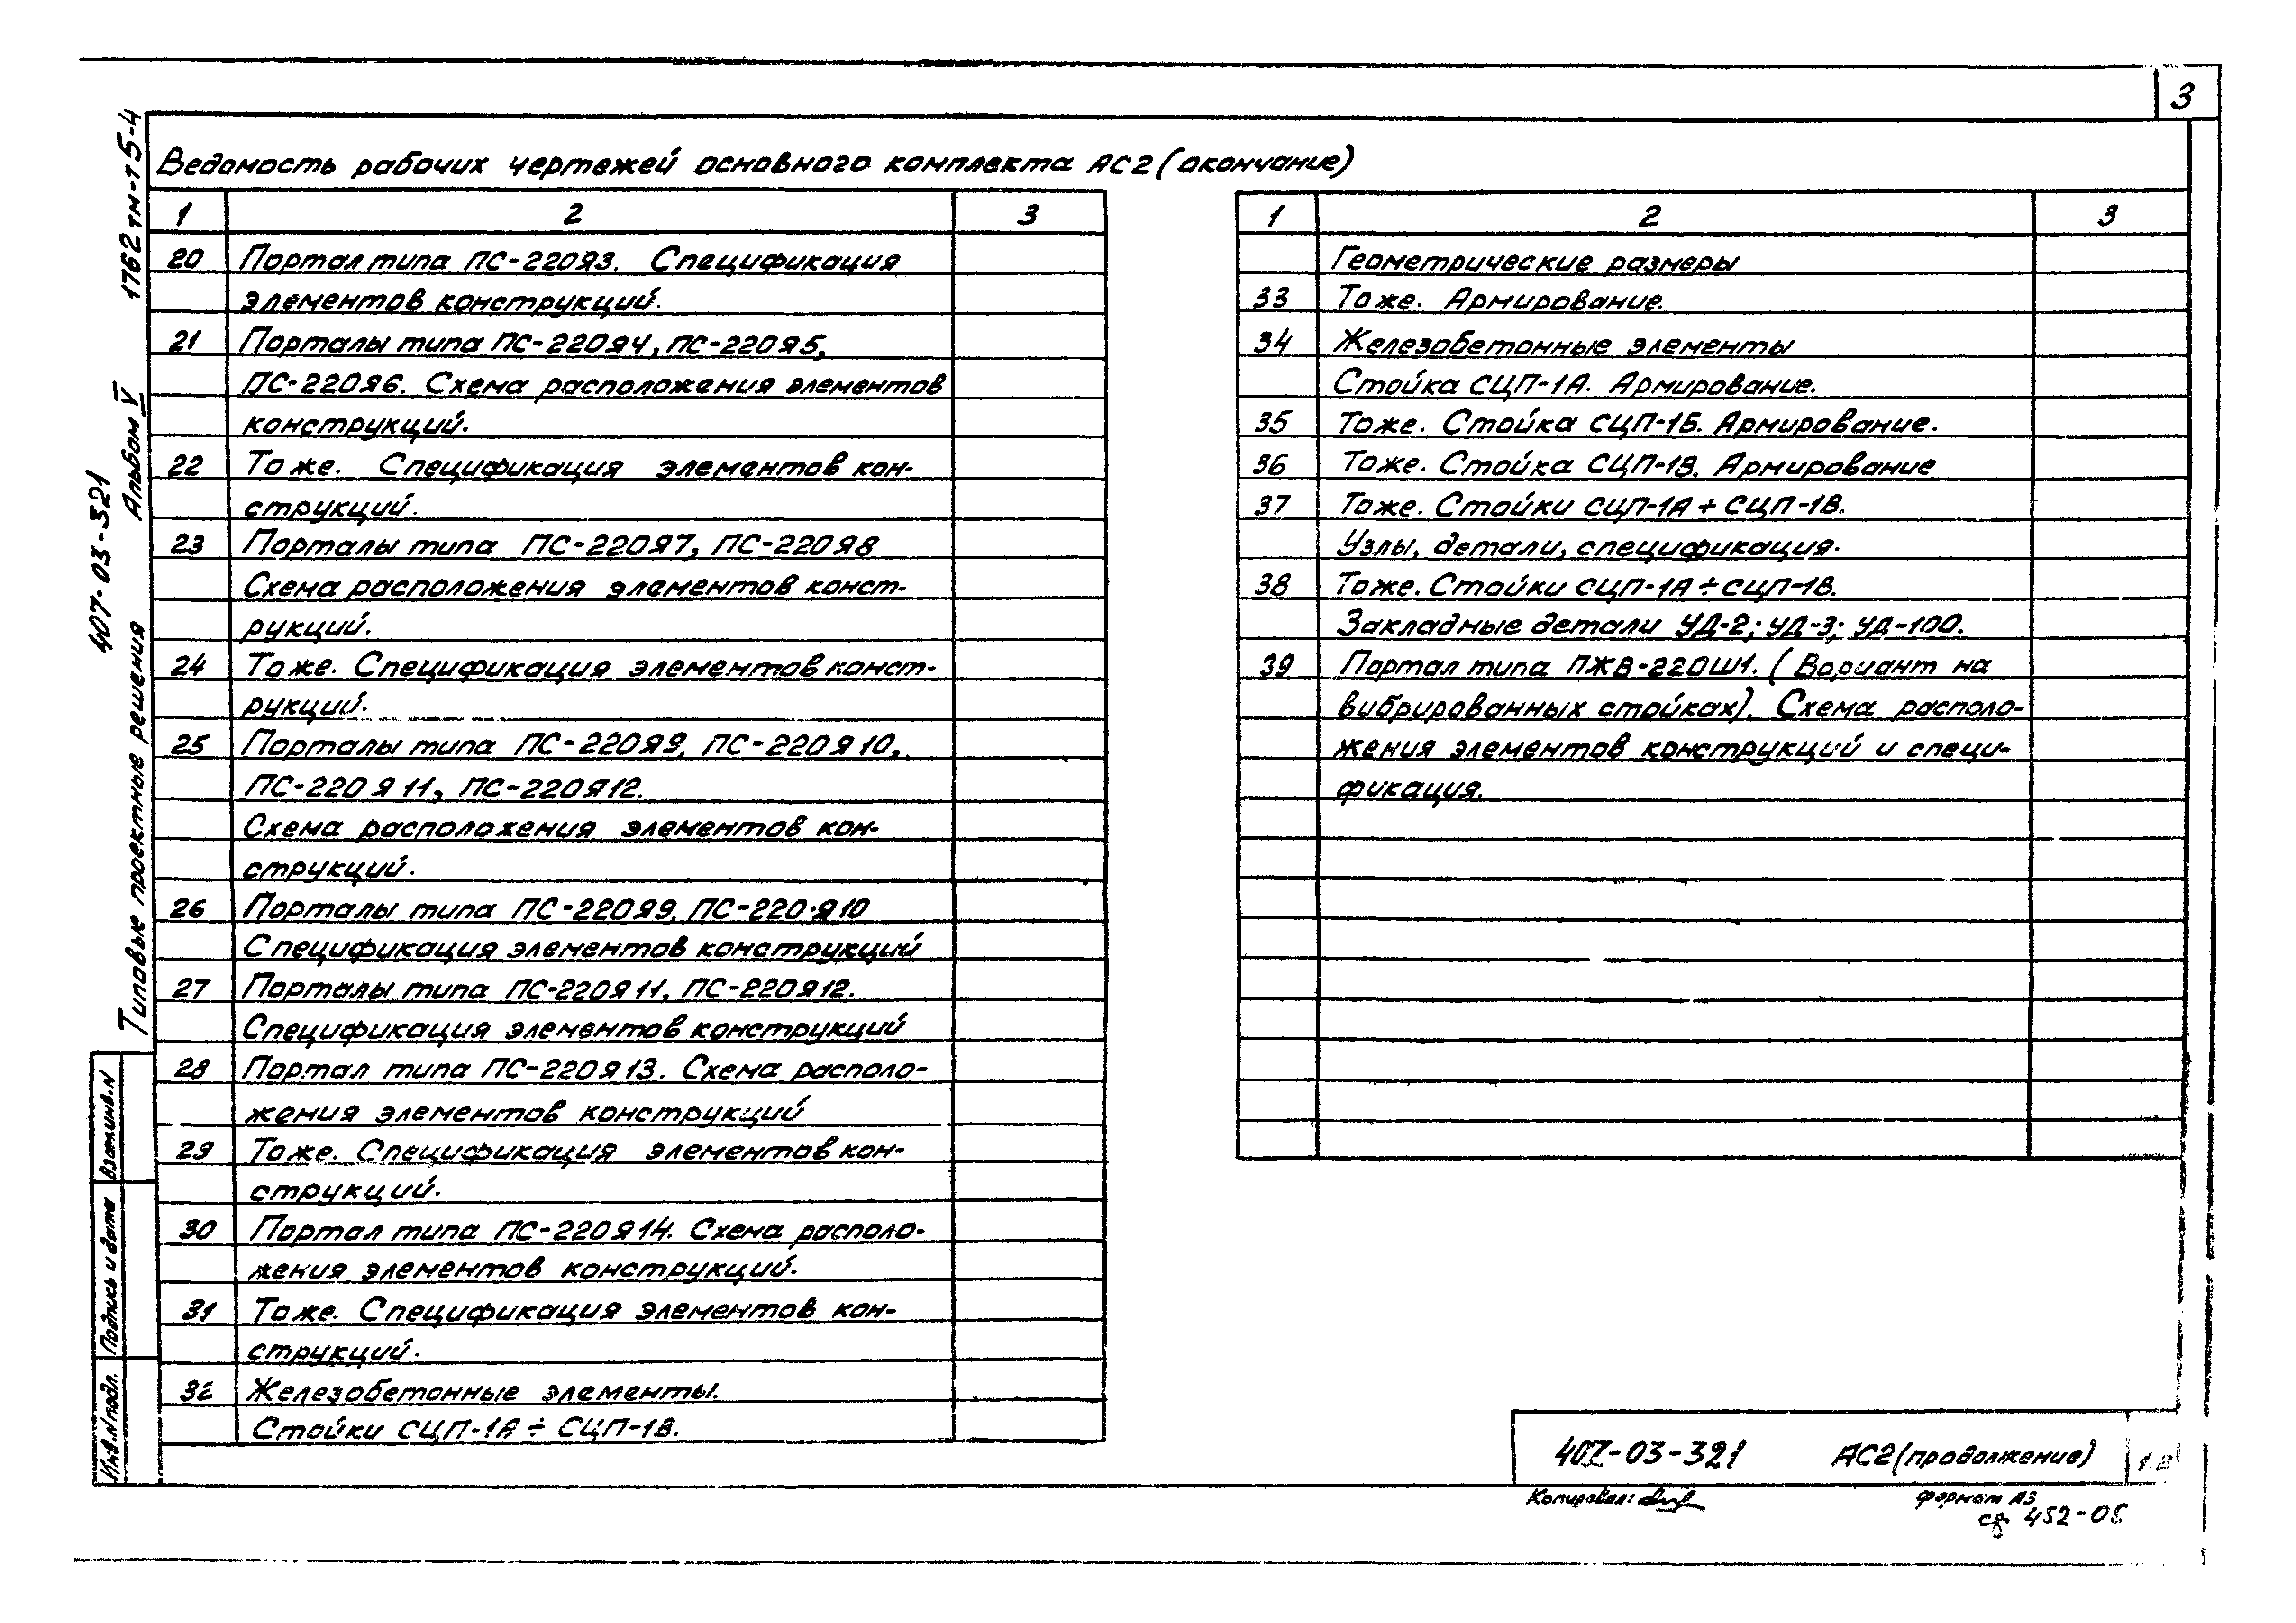 3
Ведомость рабочих чертежей основного комплекта АС2 (окончание)
1 2 3
20 Портал типа ПС-220Я3. Спецификация
элементов конструкций.
21 Порталы типа ПС-220Я4, ПС-220Я5,
ПС-220Я6. Схема расположения элементов
конструкций.
22 То же. Спецификация элементов кон-
струкций.
23 Порталы типа ПС-220Я7, ПС-220Я8
Схема расположения элементов конст-
рукций.
24 То же. Спецификация элементов конст-
рукций.
25 Порталы типа ПС-220Я9, ПС-220Я10,
ПС-220Я11, ПС-220Я12.
Схема расположения элементов кон-
струкций.
26 Порталы типа ПС-220Я9, ПС-220·Я10
Спецификация элементов конструкций
27 Порталы типа ПС-220Я11, ПС-220Я12.
Спецификация элементов конструкций
28 Портал типа ПС-220Я13. Схема располо-
жения элементов конструкций
29 То же. Спецификация элементов кон-
струкций.
30 Портал типа ПС-220Я14. Схема располо-
жения элементов конструкций.
31 То же. Спецификация элементов кон-
струкций.
32 Железобетонные элементы.
Стойки СЦП-1А ÷ СЦП-1В.
1 2 3
Геометрические размеры
33 То же. Армирование.
34 Железобетонные элементы
Стойка СЦП-1А. Армирование.
35 То же. Стойка СЦП-1Б. Армирование.
36 То же. Стойка СЦП-1В. Армирование
37 То же. Стойки СЦП-1А ÷ СЦП-1В.
Узлы, детали, спецификация.
38 То же. Стойки СЦП-1А ÷ СЦП-1В.
Закладные детали УД-2; УД-3; УД-100.
39 Портал типа ПЖВ-220Ш1. (Вариант на
вибрированных стойках). Схема располо-
жения элементов конструкций и специ-
фикация.
1762тм-т5-4
407-03-321
Альбом V
Типовые проектные решения
Взам.инв.N
Подпись и дата
Инв.N подл.
407-03-321 АС2 (продолжение) 1.2
Копировал: Формат А3
сф 452-05